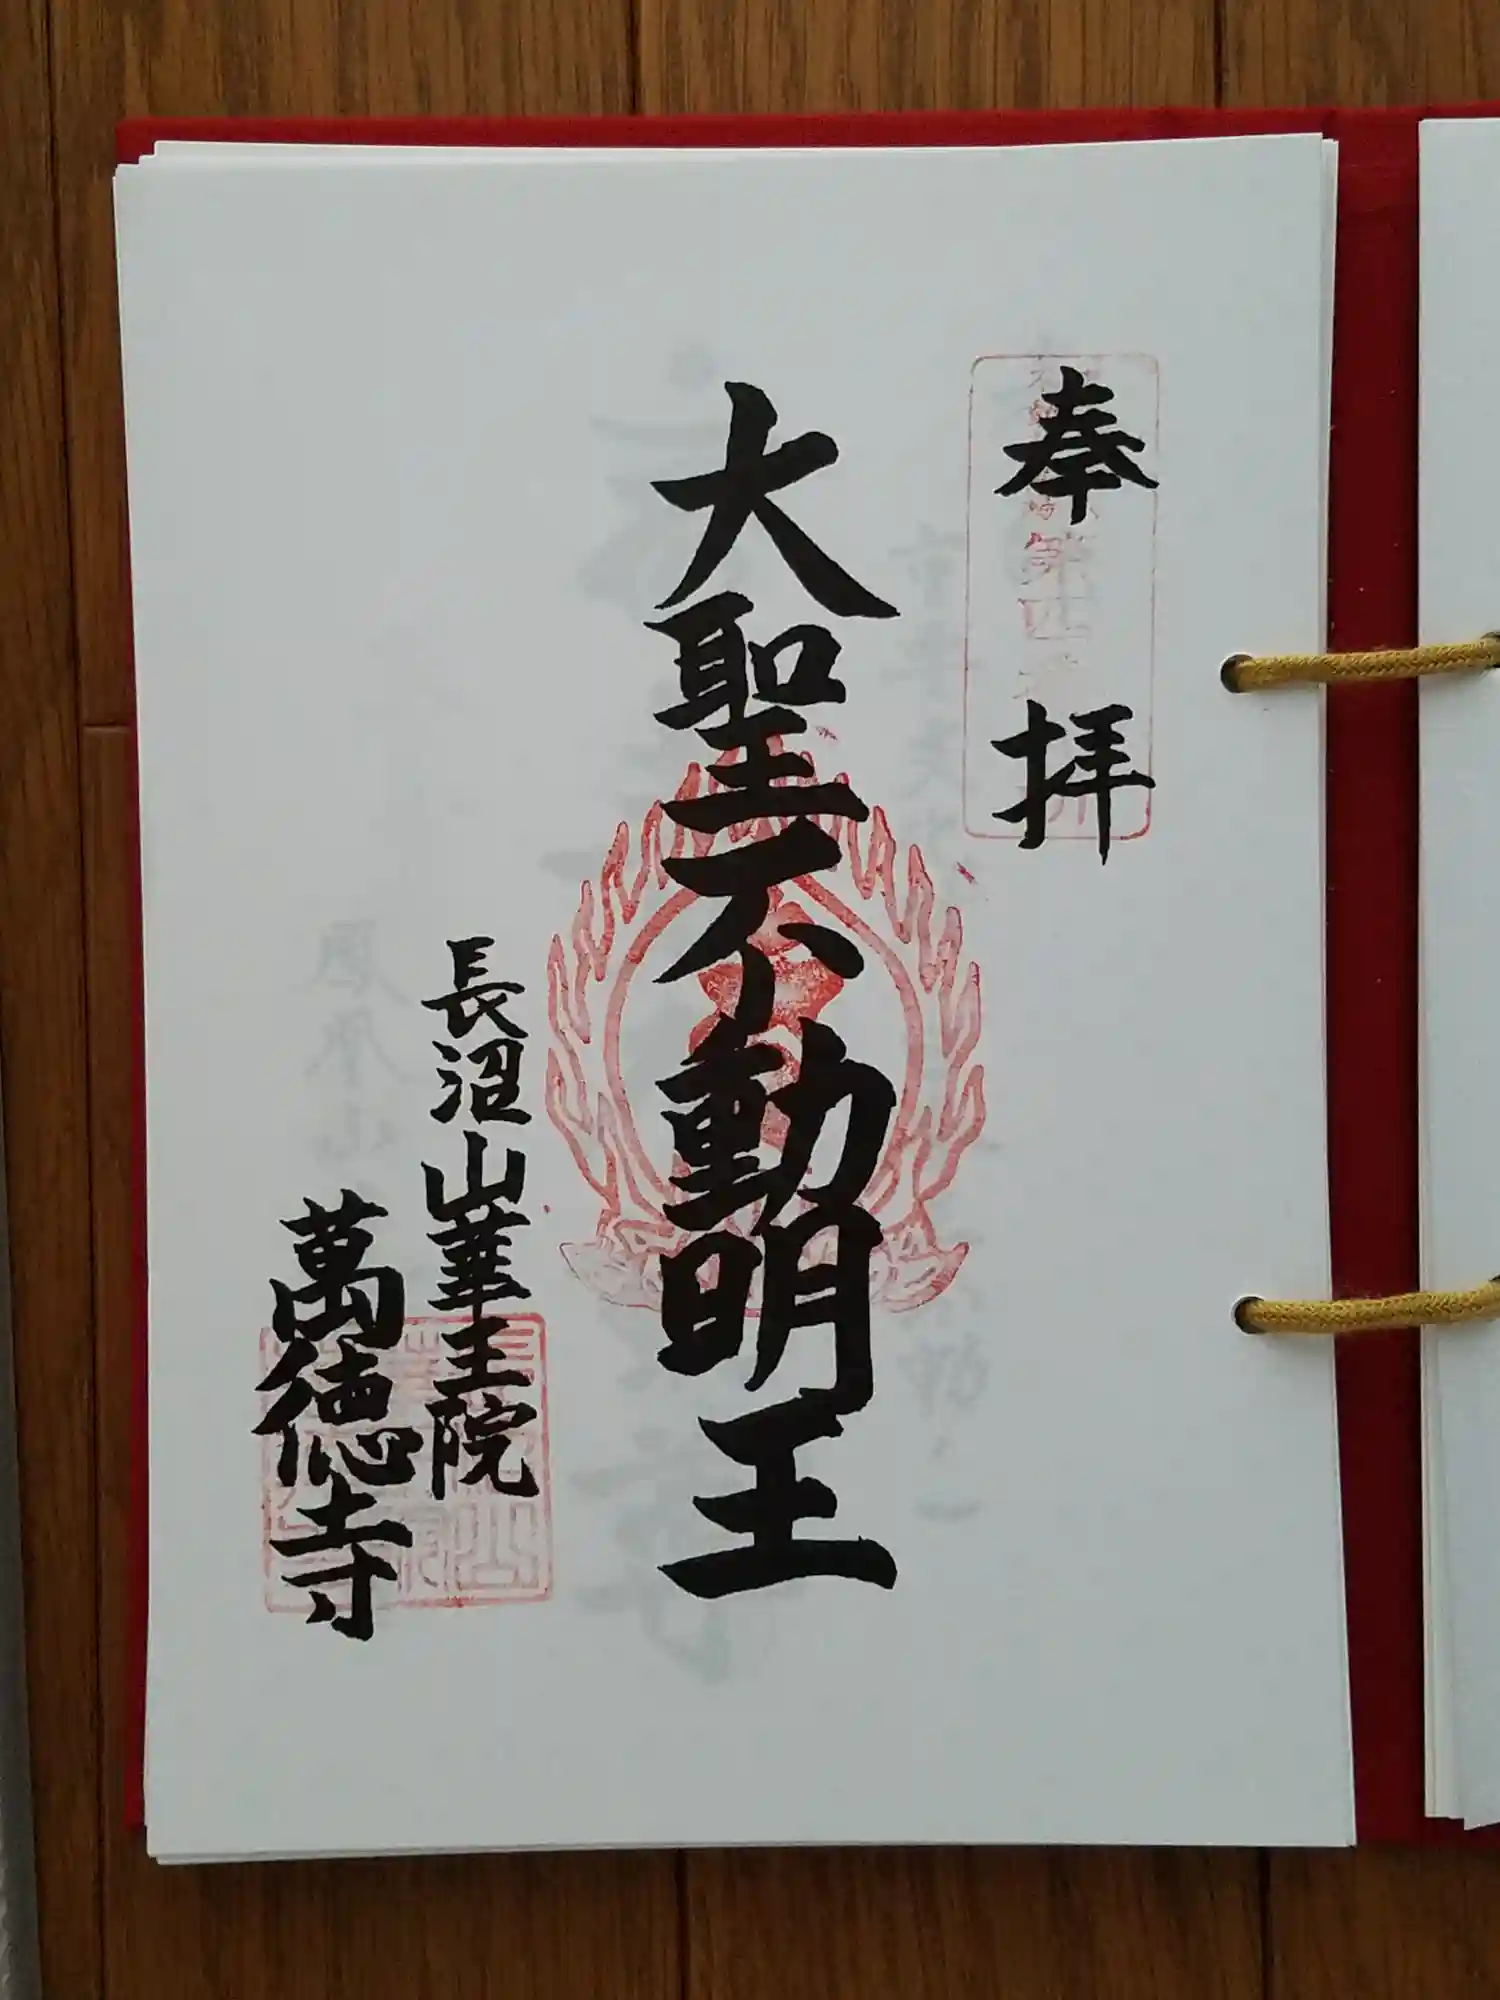 奉拝
第四番
大聖不動明王
長沼山華王院
萬徳寺